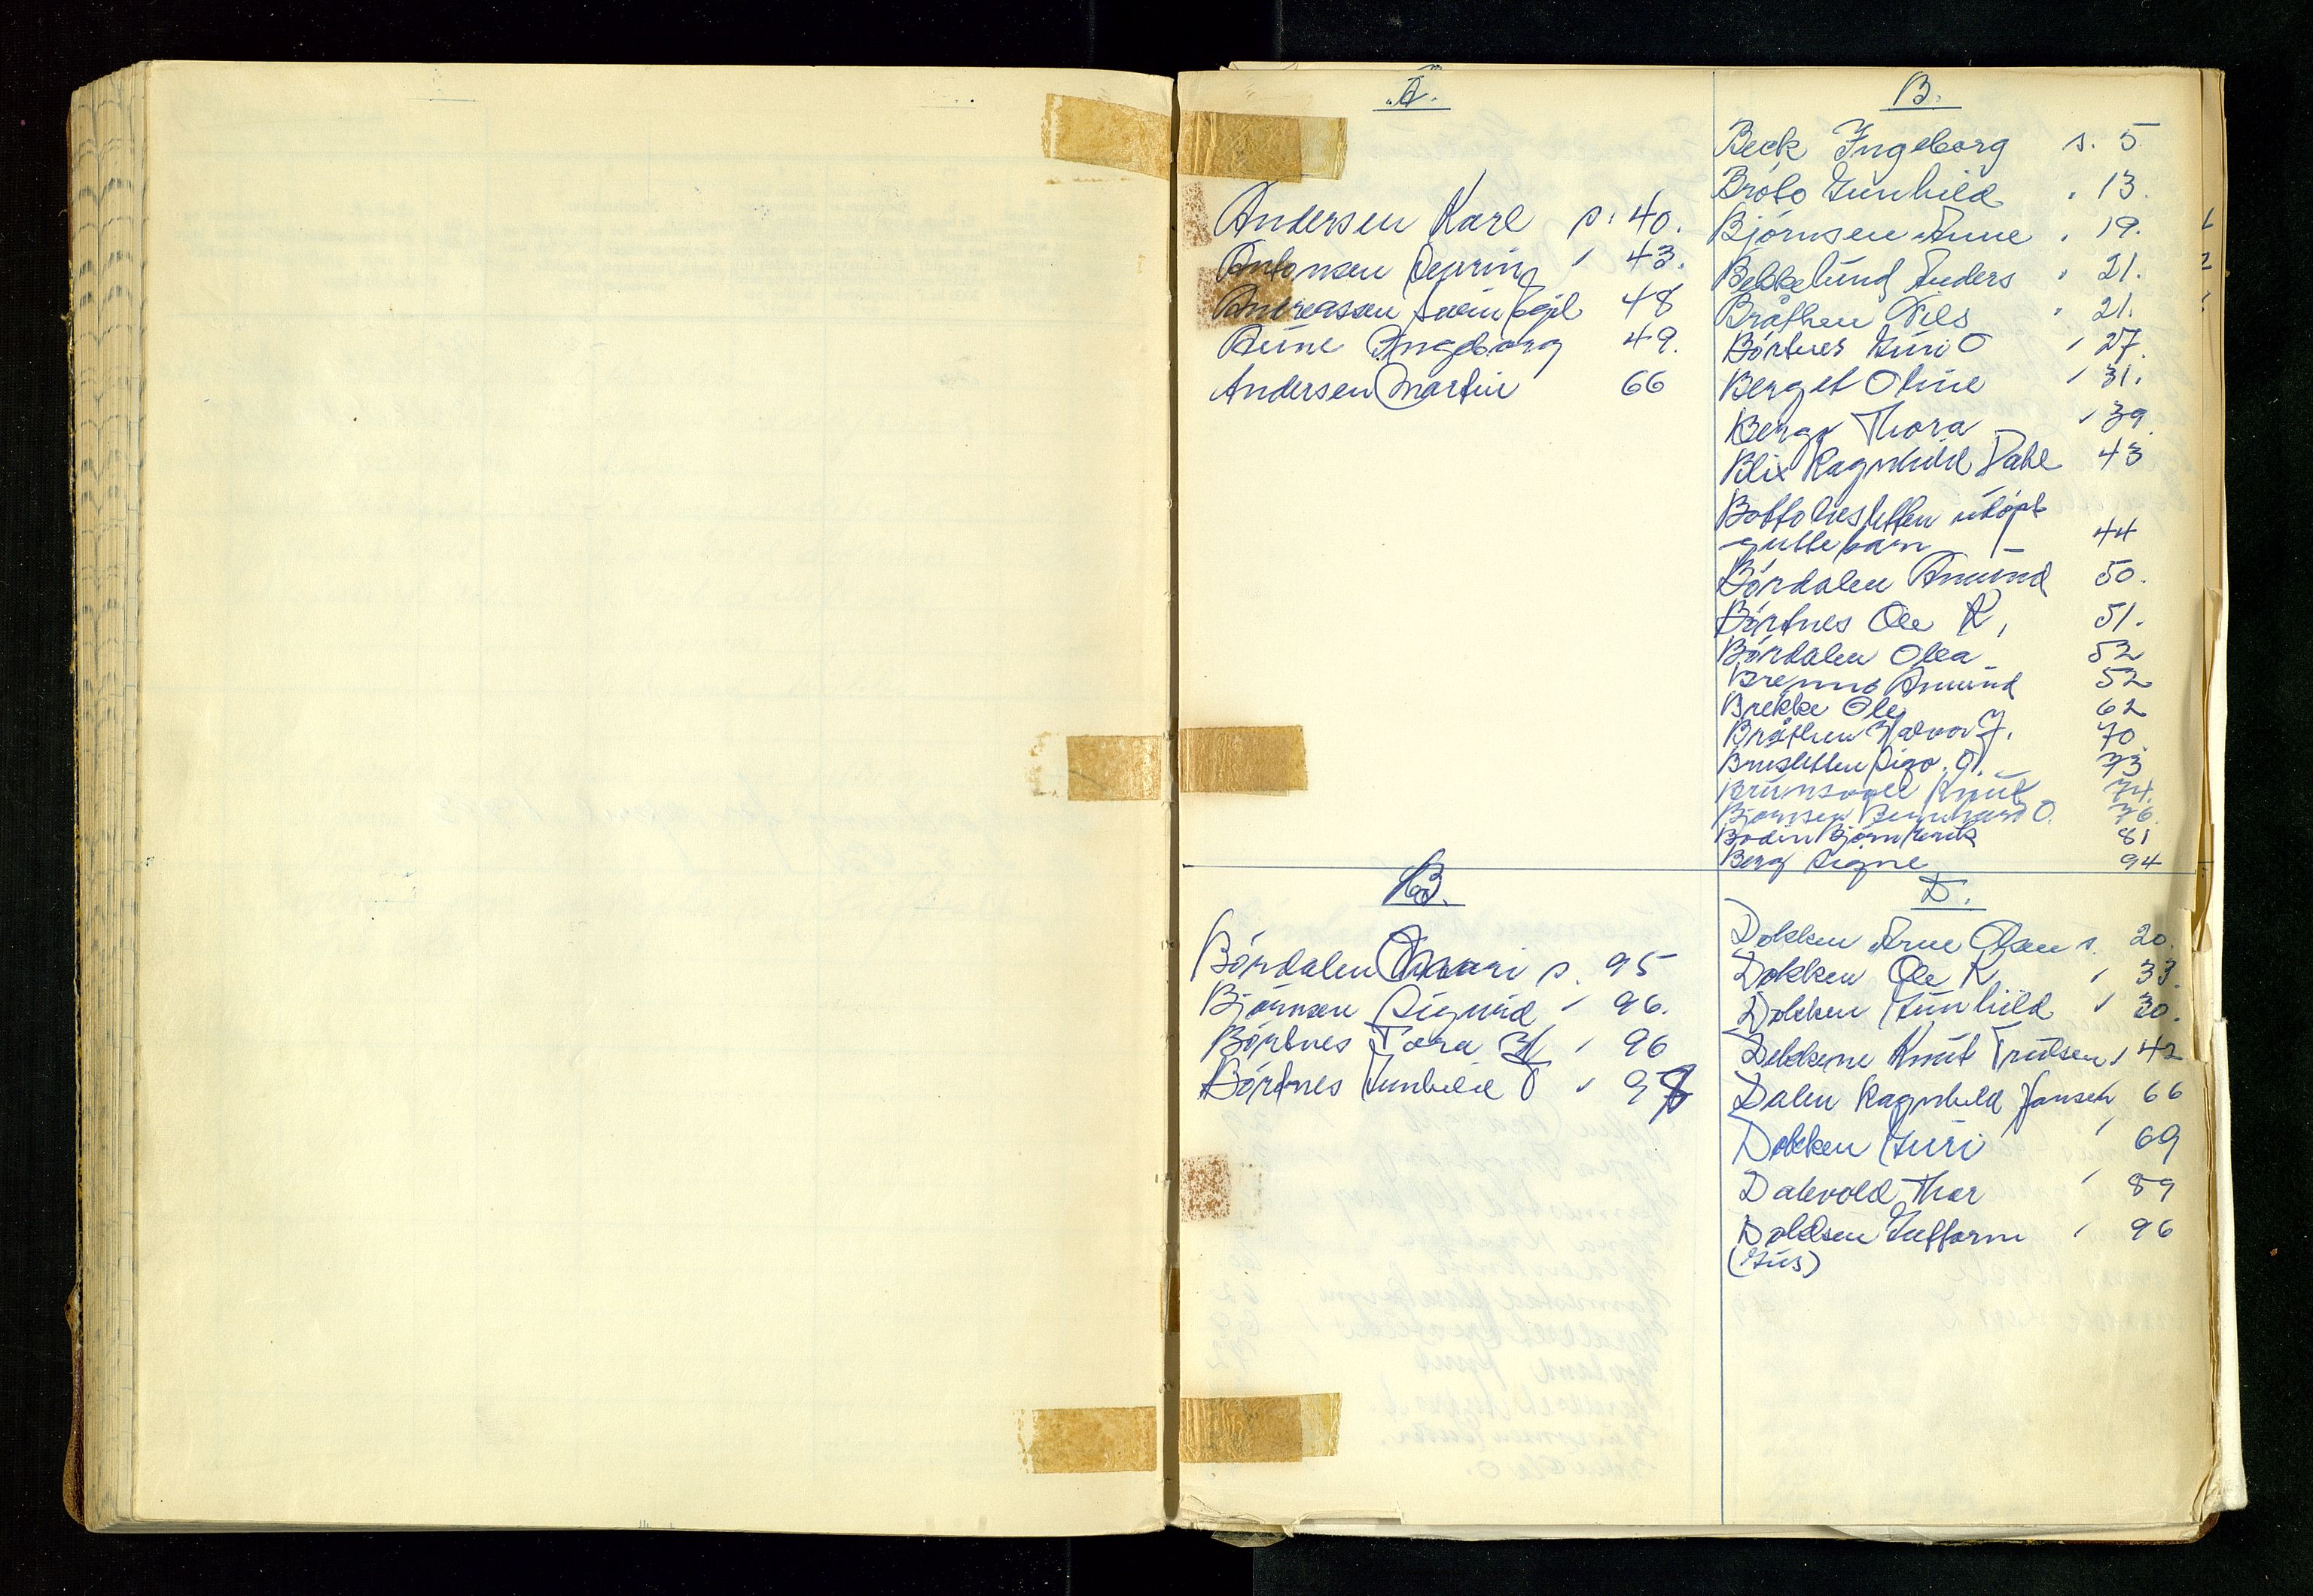 A.
Andersen Karl s. 40.
Antonsen Henring " 43.
Andreassen Svein Egil 48
Aune Ingeborg 49.
Andersen Martin 66
B.
Beck Ingeborg s. 5.
Bråto Gunhild " 13.
Bjørnsen Anne " 19.
Bekkelund Anders " 21.
Bråthen Nils " 21.
Børtnes Guri O " 27.
Berget Oline " 31.
Berge Thora " 39.
Blix Ragnhild Dahl 43
Bottolvsletten udøpt
guttebarn 44
Bördalen Amund 50.
Börtnes Ole K. 51.
Bördalen Olea 52
Brenno Amund 52
Brekke Ole 62
Bråthen Halvor J. 70.
Brusletten Sigv. O. 73
Brumsvoll Knut 74.
Bjørnsen Bernhard O. 76.
Bodin Bjørn Henrik 81
Berg Signe 94
B.
Børdalen Maari s. 95
Bjørnsen Sigurd " 96.
Børtnes Tora H " 96
Børtnes Gunhild T " 98
D.
Dokken Arne Olsen s. 20.
Dokken Ole K. " 33.
Dokken Gunhild " 30.
Dekkene Knut Trulsen " 42
Dalen Ragnhild Jansen 66
Dokken Guri " 69
Dalevold Thor " 89
Doldsen Guttorm " 96
(Gus)